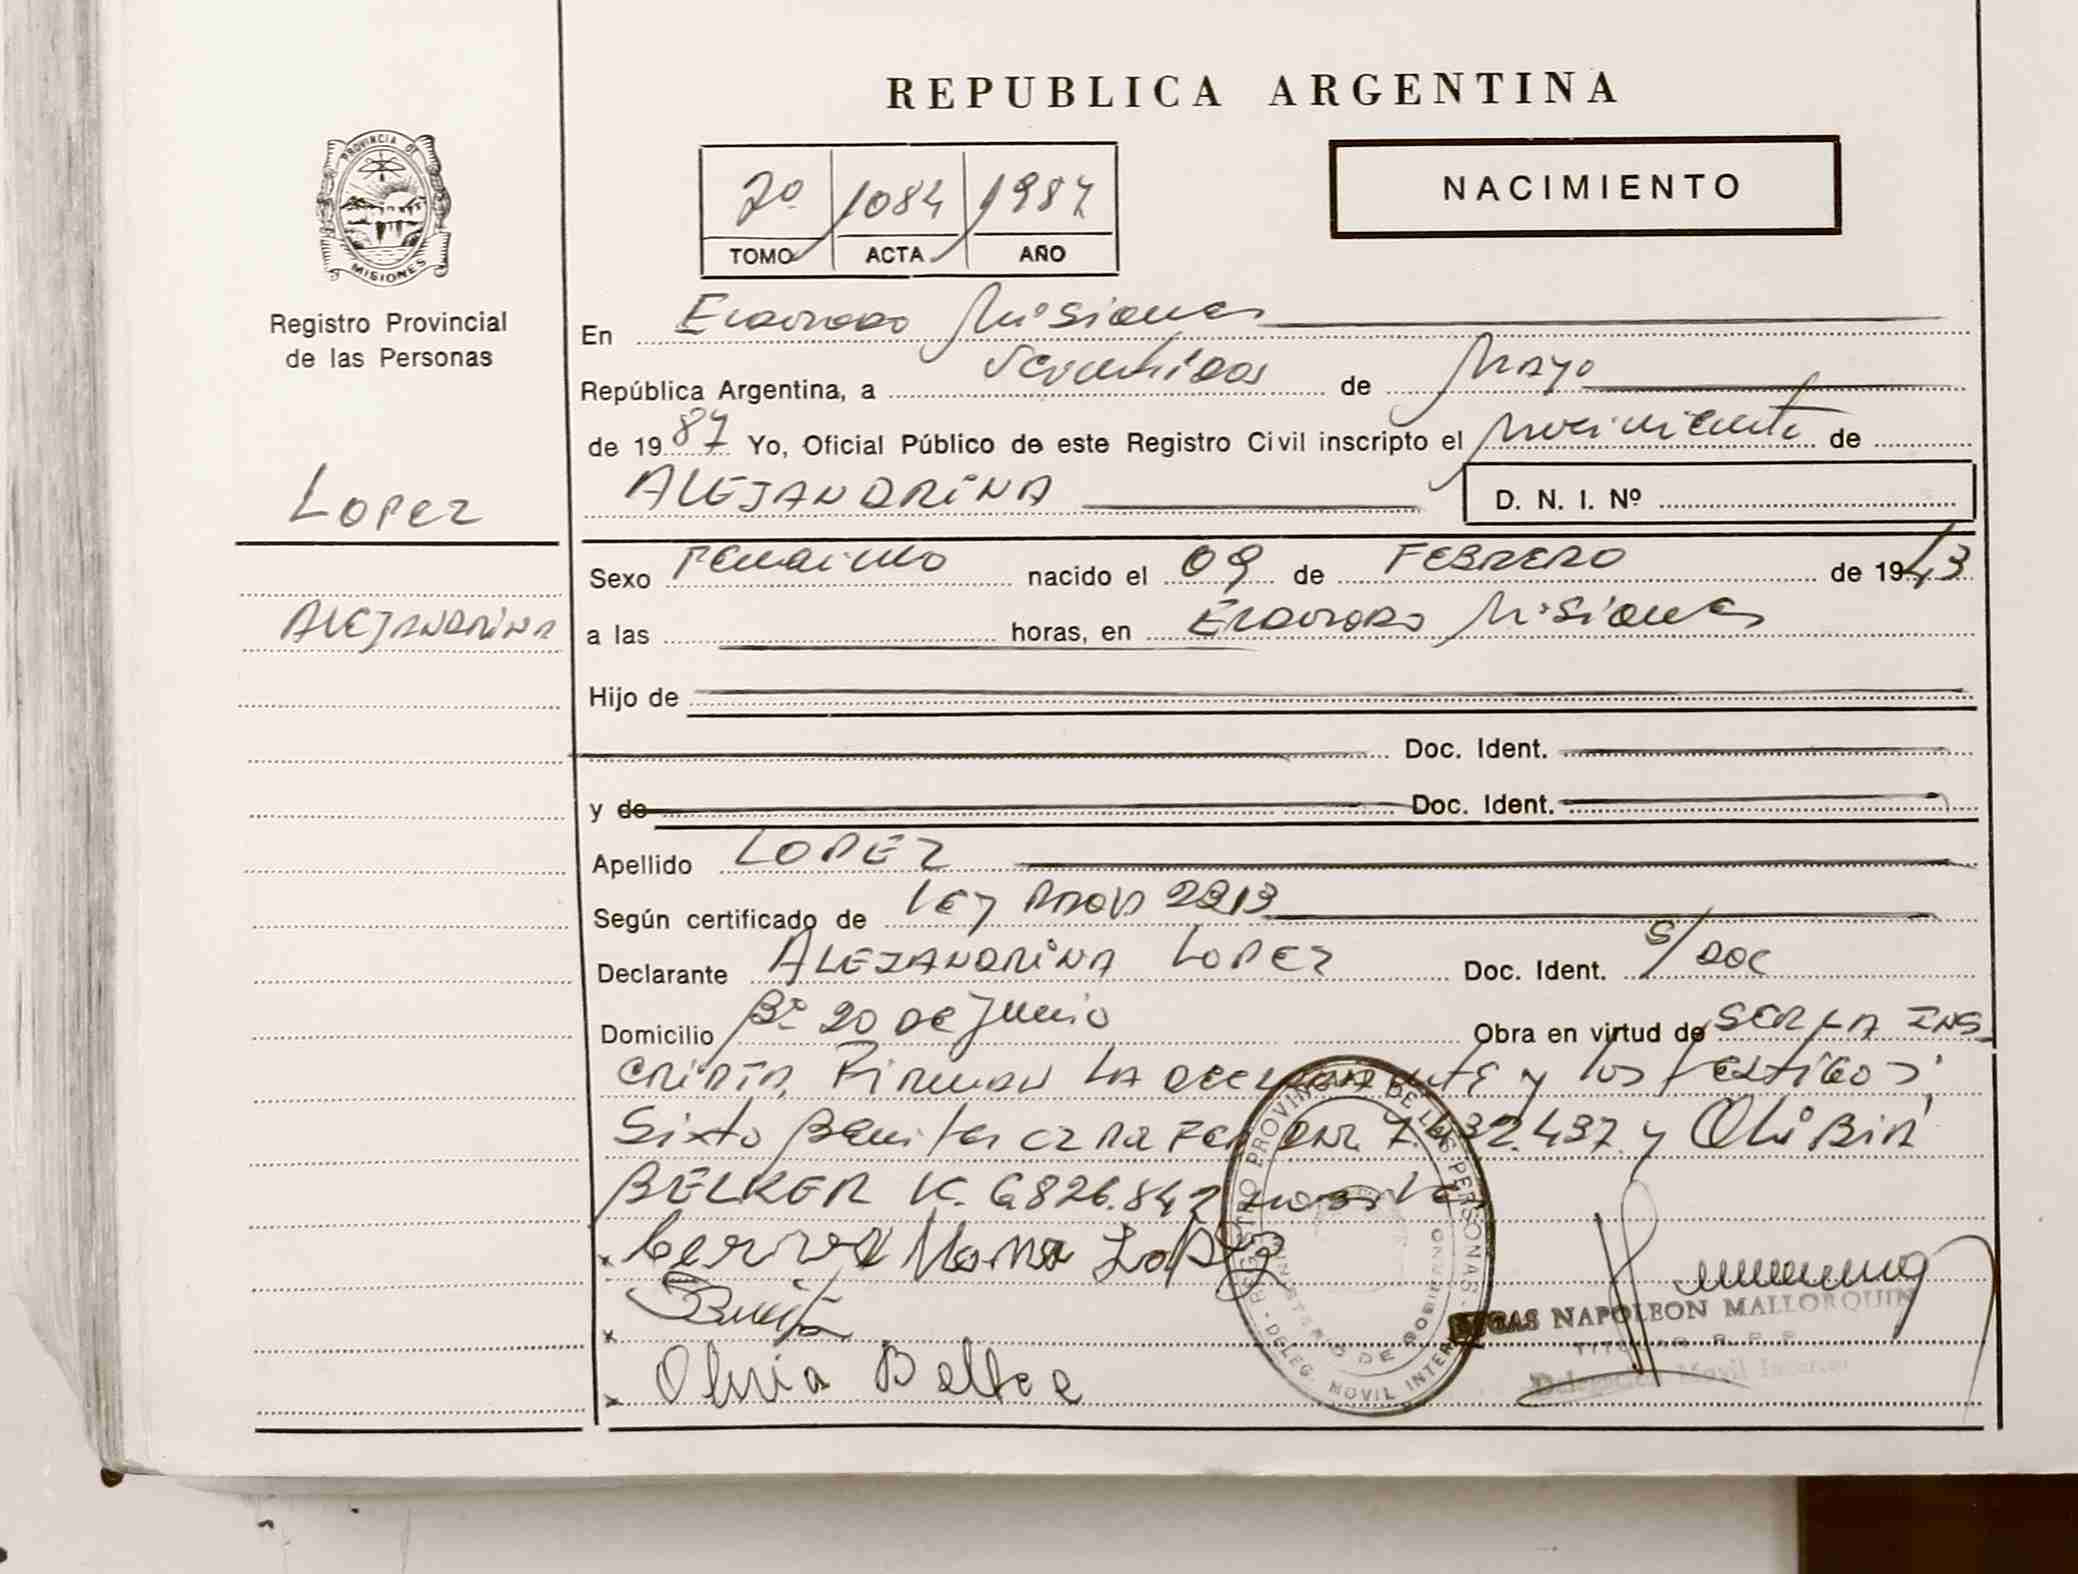 REPUBLICA ARGENTINA
PROVINCIA DE
MISIONES
Registro Provincial
de las Personas
2º 1084 1987
TOMO ACTA AÑO
NACIMIENTO
En Eldorado Misiones
República Argentina, a Veintidos de Mayo
de 1987 Yo, Oficial Público de este Registro Civil inscripto el Nacimiento de
ALEJANDRINA D. N. I. Nº
Lopez
ALEJANDRINA
Sexo Femenino nacido el 09 de FEBRERO de 1943
a las horas, en Eldorado Misiones
Hijo de
Doc. Ident.
y de Doc. Ident.
Apellido LOPEZ
Según certificado de Ley 2213
Declarante ALEJANDRINA LOPEZ Doc. Ident. S/DOC
Domicilio Bº 20 DE Junio Obra en virtud de SER LA INS
CRIPTA, Firman LA DECLARANTE y los testigos:
Sixto Benitez DNI 7.432.437 y Olibia
BELKER 6.826.842
Maria Lopez
SBenitez
Olivia Belke
REGISTRO PROVINCIAL DE LAS PERSONAS
MINISTERIO DE GOBIERNO
DELEG. MOVIL INTERIOR
NAPOLEON MALLORQUIN
TITULAR R.P.P.
Delegacion Movil Interior